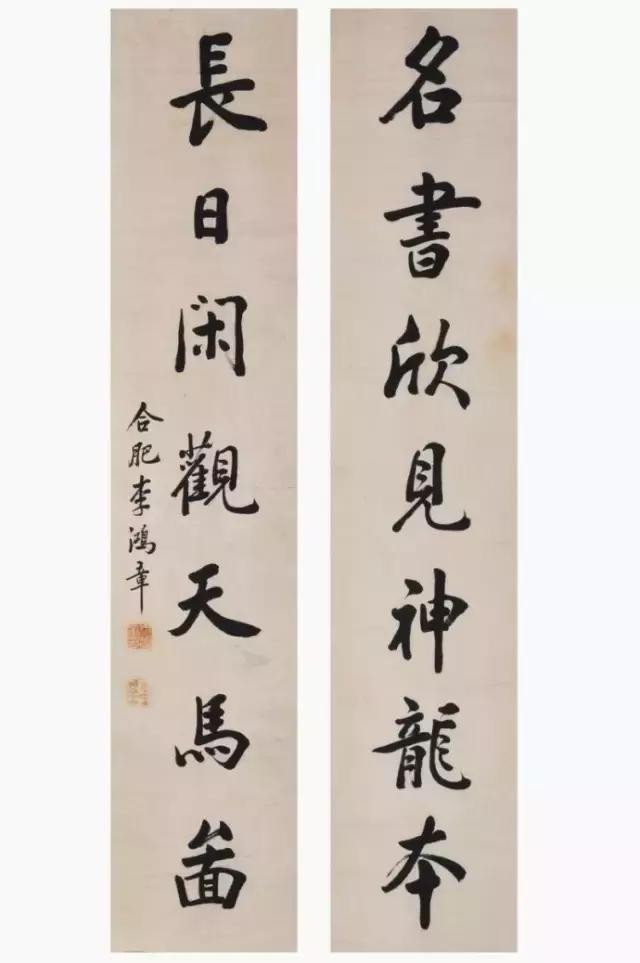 名書欣見神龍本
長日閑觀天馬圖
合肥李鴻章